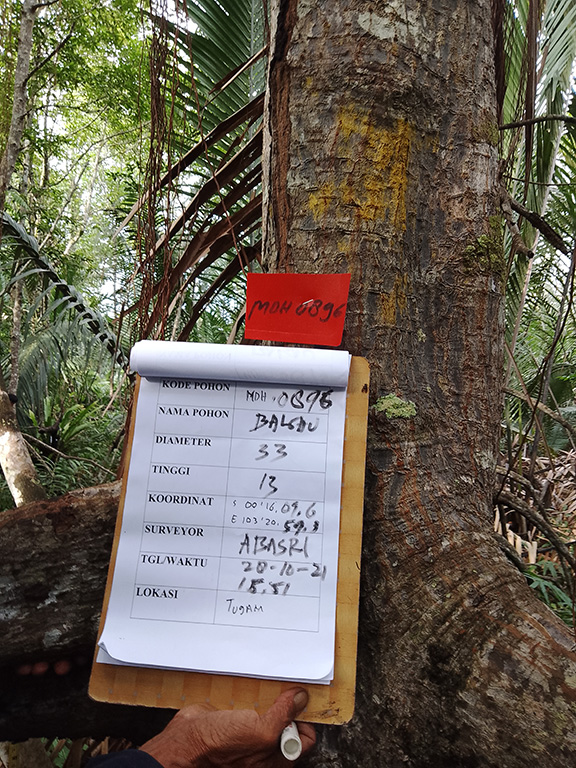 MDH 0896
KODE POHON MDH. 0896
NAMA POHON BALGAU
DIAMETER 33
TINGGI 13
KOORDINAT S 00°16'.09.6
E 103°20'.59.3
SURVEYOR ABASRI
TGL/WAKTU 20-10-21
15.51
LOKASI TUGAM